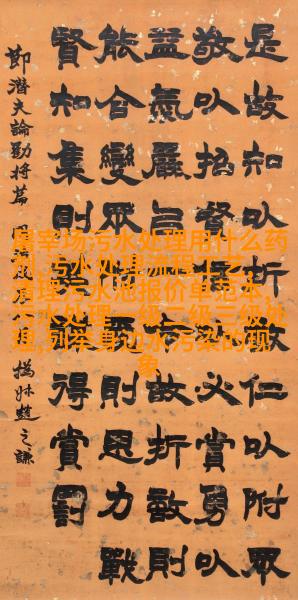 屠宰场污水处理用什么药
剂,污水处理流程工艺,
清理污水池报价单范本,
污水处理一级二级三级处
理,列举身边水污染的现
象
是故知以折敵仁以附眾
敬以招賢以必賞勇以
益氣嚴以故折敵則
能合變眾則思力戰
賢知集則得賞罰
節潛夫論勸將篇 撝叔趙之謙